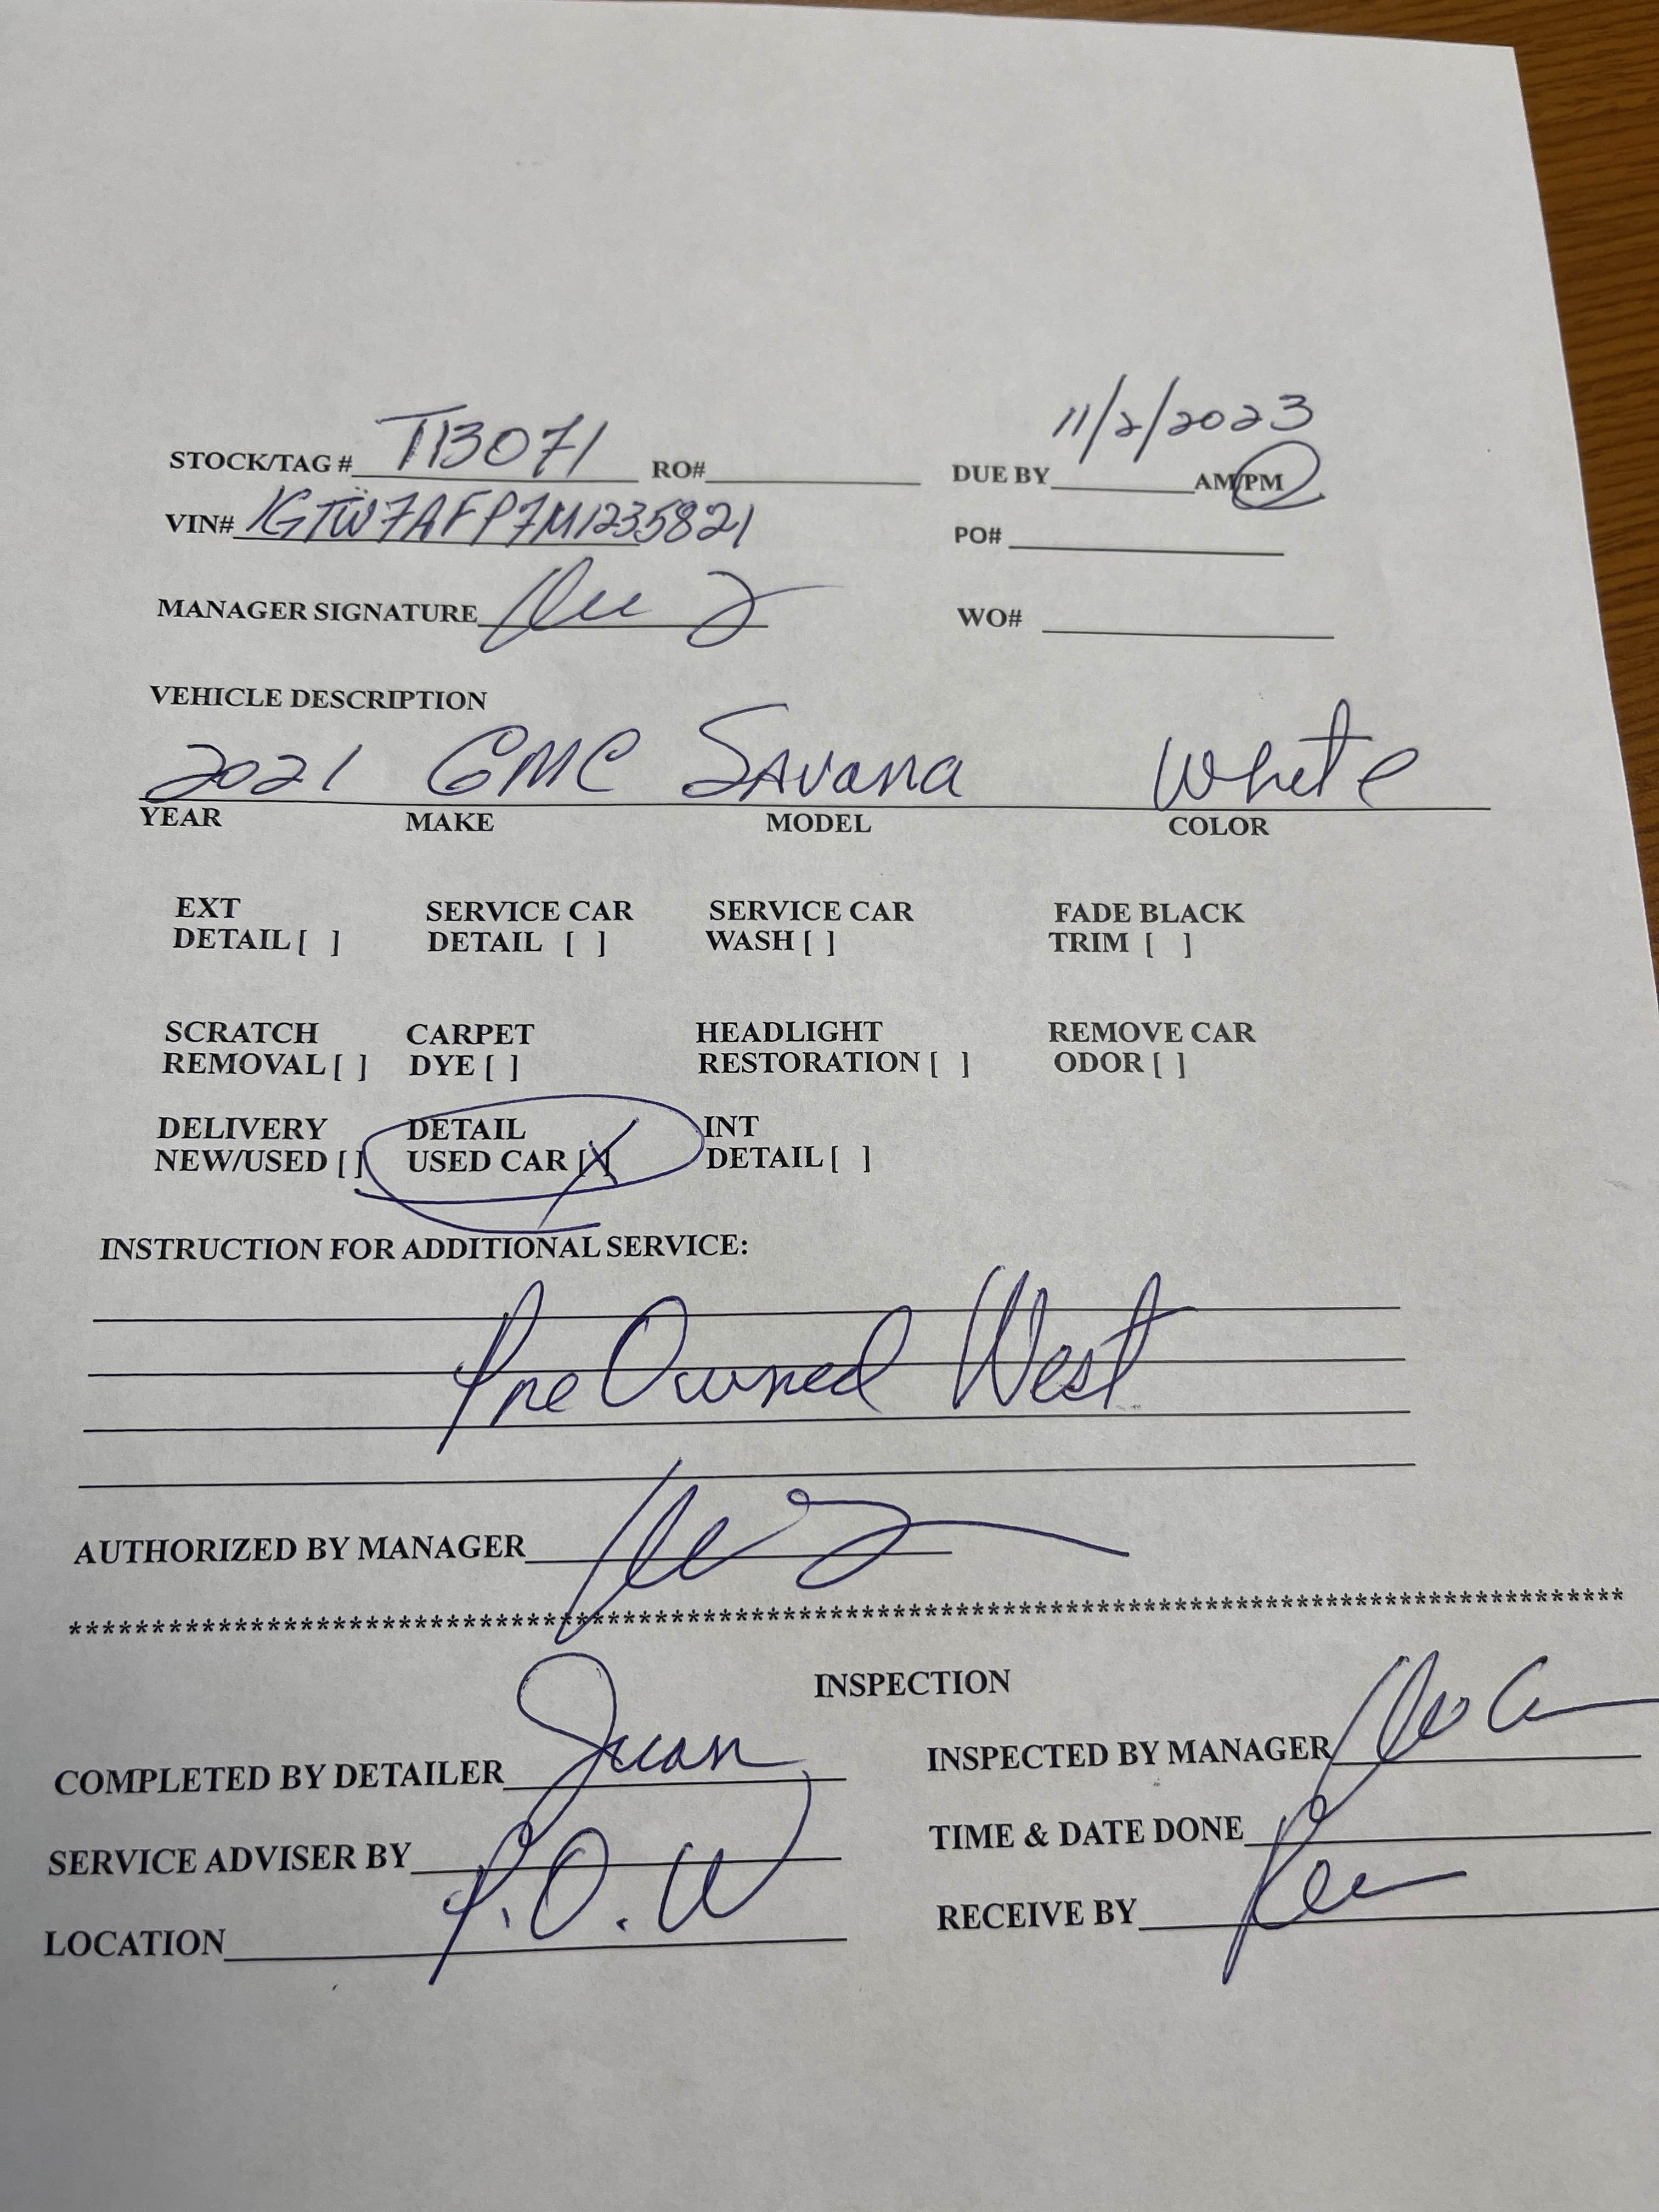 STOCK/TAG # T13071 RO# DUE BY 11/2/2023 AM/PM
VIN# 1GTW7AFP7M1235821 PO#
MANAGER SIGNATURE WO#
VEHICLE DESCRIPTION
2021 GMC Savana White
YEAR MAKE MODEL COLOR
EXT SERVICE CAR SERVICE CAR FADE BLACK
DETAIL [ ] DETAIL [ ] WASH [ ] TRIM [ ]
SCRATCH CARPET HEADLIGHT REMOVE CAR
REMOVAL [ ] DYE [ ] RESTORATION [ ] ODOR [ ]
DELIVERY DETAIL INT
NEW/USED [ ] USED CAR [X] DETAIL [ ]
INSTRUCTION FOR ADDITIONAL SERVICE:
Pre Owned West
AUTHORIZED BY MANAGER
**********************************************************************************************
INSPECTION
COMPLETED BY DETAILER Juan INSPECTED BY MANAGER
SERVICE ADVISER BY P.O.W TIME & DATE DONE
LOCATION RECEIVE BY